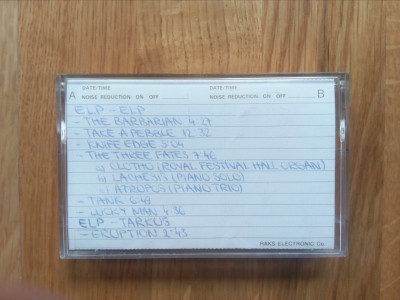 A DATE/TIME DATE/TIME B
NOISE REDUCTION ON OFF NOISE REDUCTION ON OFF
ELP - ELP
- THE BARBARIAN 4:27
- TAKE A PEBBLE 12:32
- KNIFE EDGE 5:04
- THE THREE FATES 7:46
a) CLOTHO (ROYAL FESTIVAL HALL ORGAN)
b) LACHESIS (PIANO SOLO)
c) ATROPOS (PIANO TRIO)
- TANK 6:49
- LUCKY MAN 4:36
ELP - TARKUS
- ERUPTION 2:43
RAKS ELECTRONIC Co.